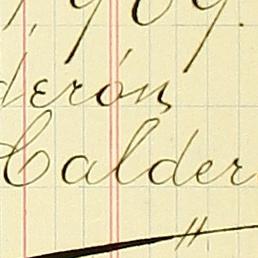 1,909.
derón
Calder
"